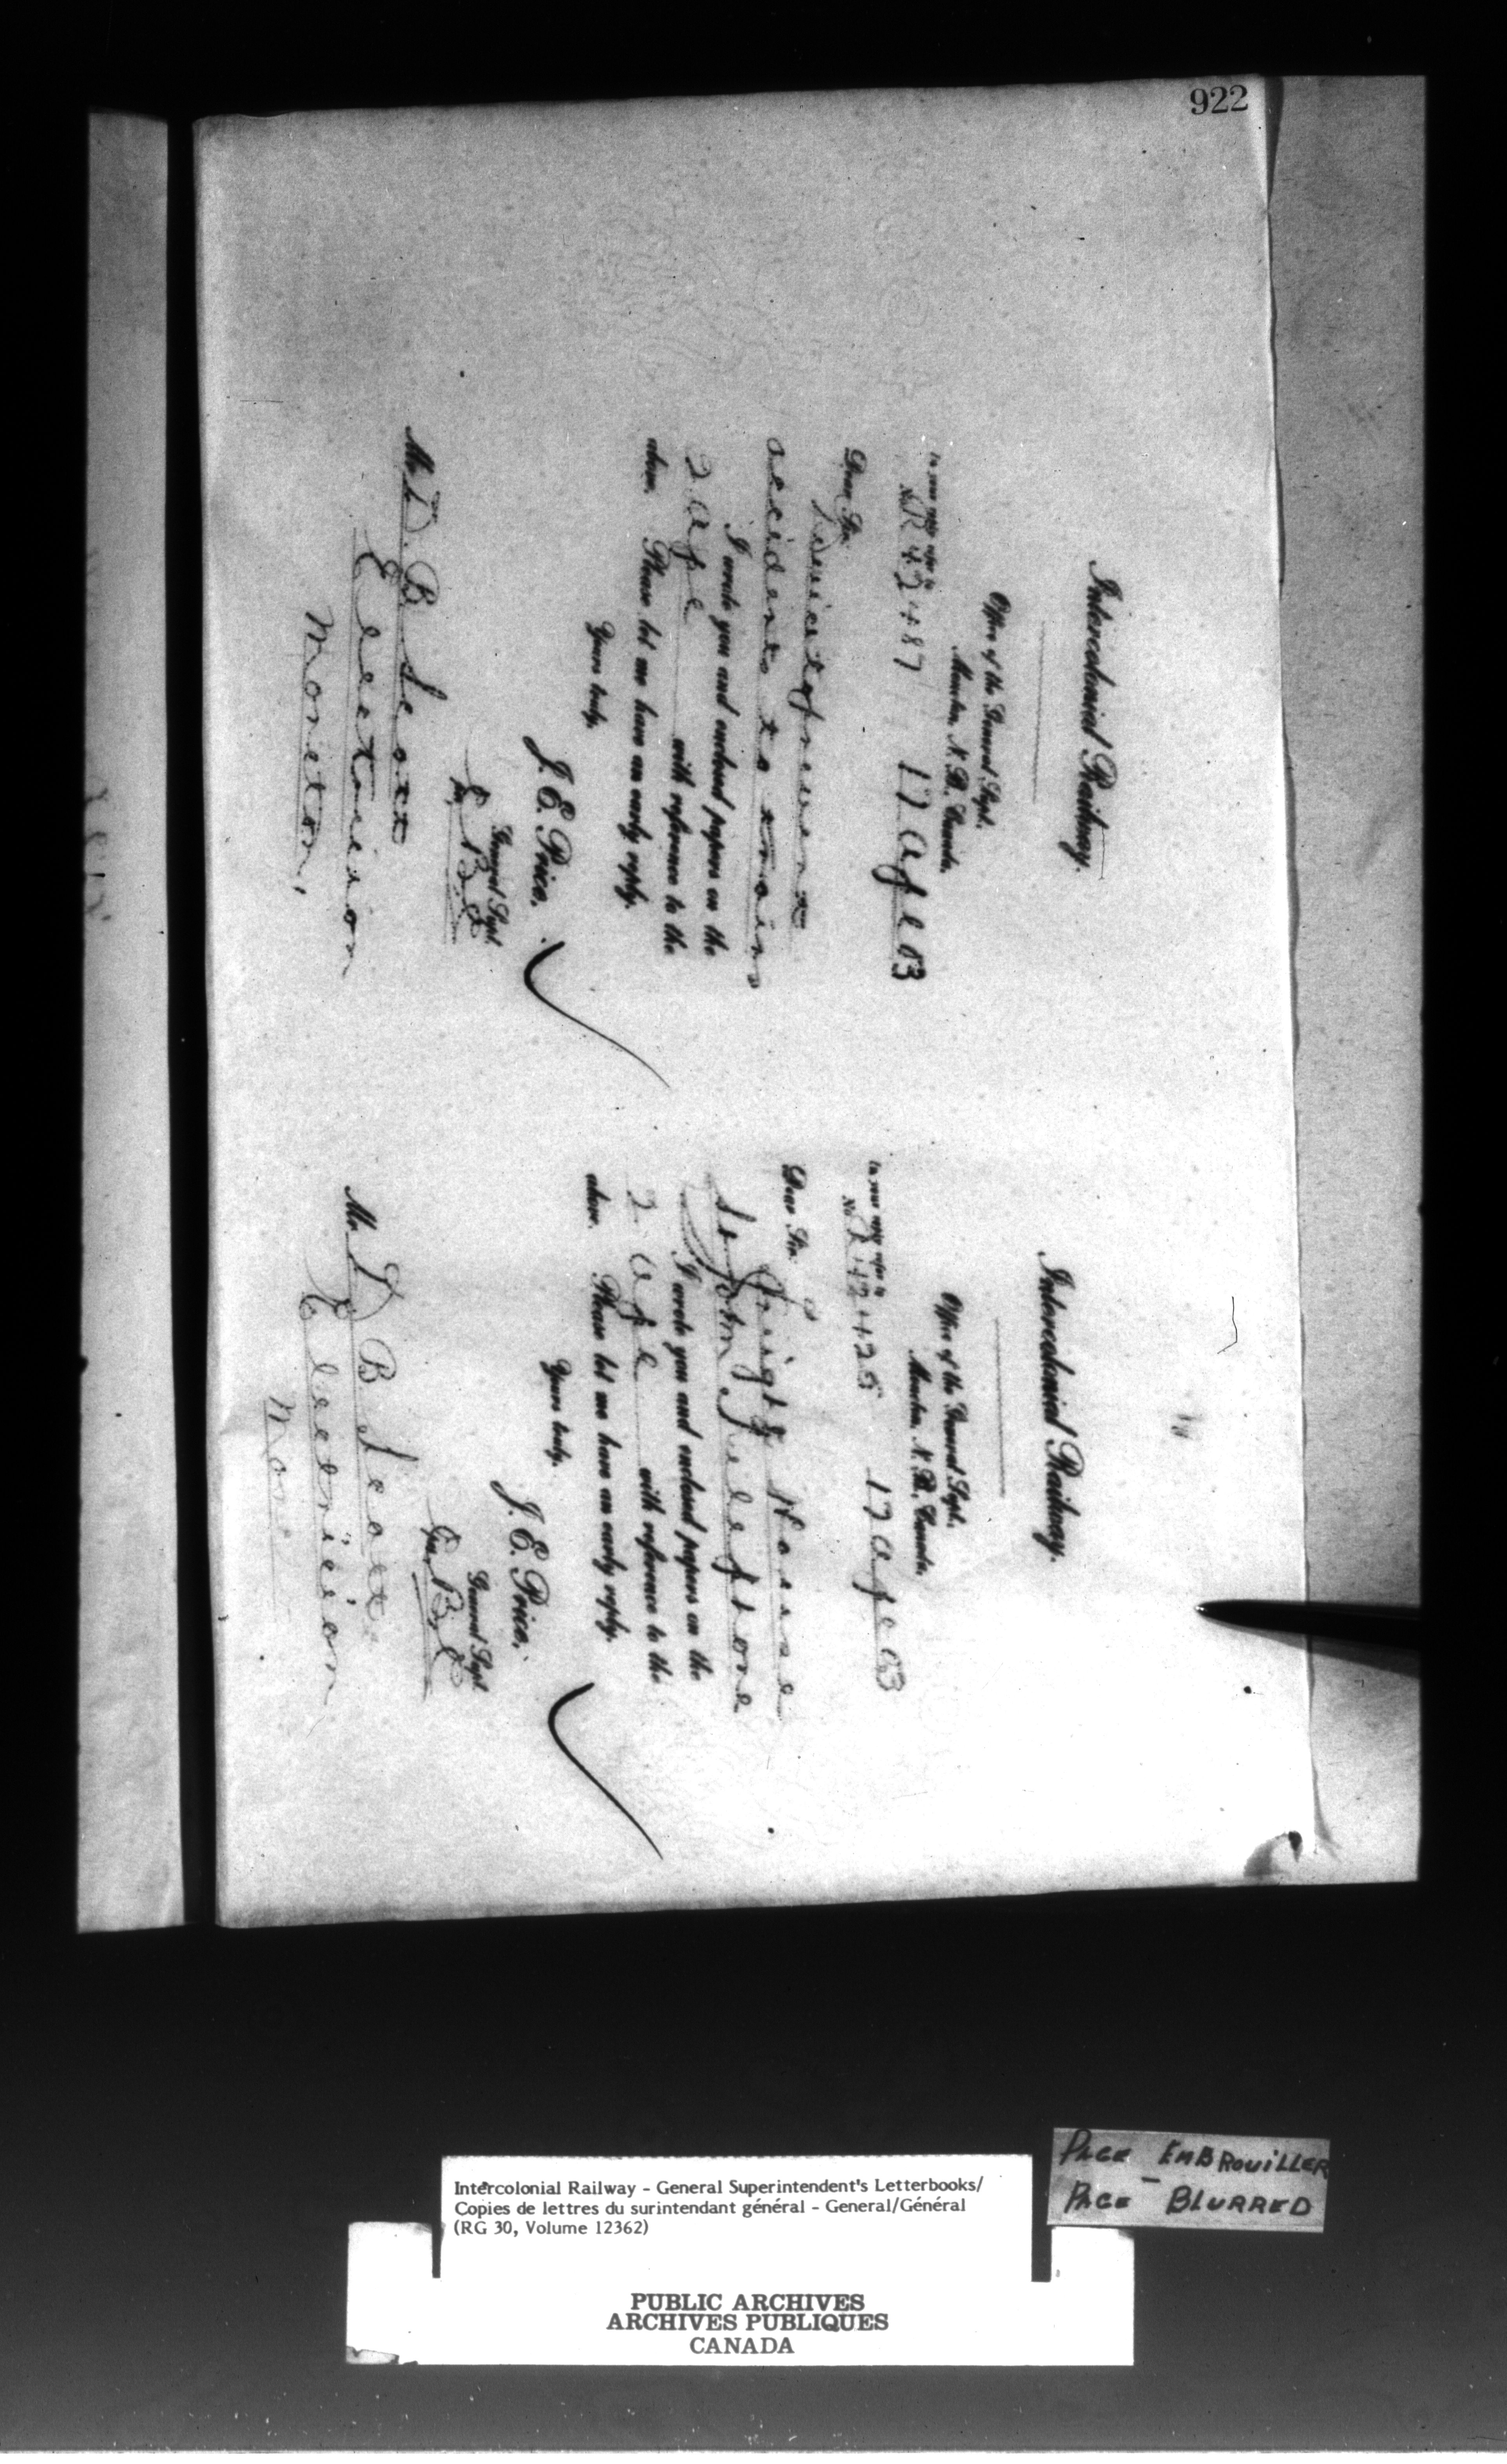 922
Intercolonial Railway.
Office of the General Supt.
Moncton, N. B., Canada,
In your reply refer to
No. R 42487 17 Apl 03
Dear Sir:
Device to prevent
accidents to trains
I wrote you and enclosed papers on the
2 Apl with reference to the
above. Please let me have an early reply.
Yours truly,
J. E. Price,
General Supt.
Mr. D. B. Scott
Electrician
Moncton,
Intercolonial Railway.
Office of the General Supt.
Moncton, N. B., Canada,
In your reply refer to
No. 42425 17 Apl 03
Dear Sir:
Freight House
St John Telephone
I wrote you and enclosed papers on the
2 Apl with reference to the
above. Please let me have an early reply.
Yours truly,
J. E. Price,
General Supt.
Mr. D B Scott
Electrician
Monc
PAGE EMBROUILLER
PAGE - BLURRED
Intercolonial Railway - General Superintendent's Letterbooks/
Copies de lettres du surintendant général - General/Général
(RG 30, Volume 12362)
PUBLIC ARCHIVES
ARCHIVES PUBLIQUES
CANADA